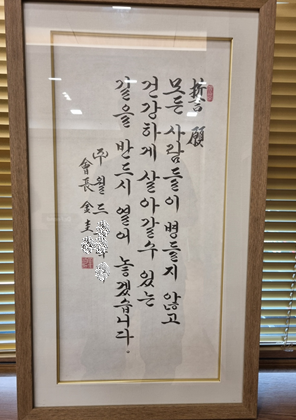 誓願
모든 사람들이 병들지 않고
건강하게 살아갈 수 있는
길을 반드시 열어 놓겠습니다.
㈜월드
會長 金圭